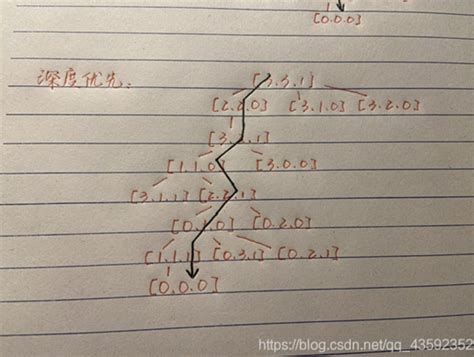 [0.0.0]
深度优先:
[3.3.1]
[2.2.0] [3.1.0] [3.2.0]
[3.2.1]
[1.1.0] [3.0.0]
[3.1.1] [2.2.1]
[0.1.0] [0.2.0]
[1.1.1] [0.3.1] [0.2.1]
[0.0.0]
https://blog.csdn.net/qq_43592352